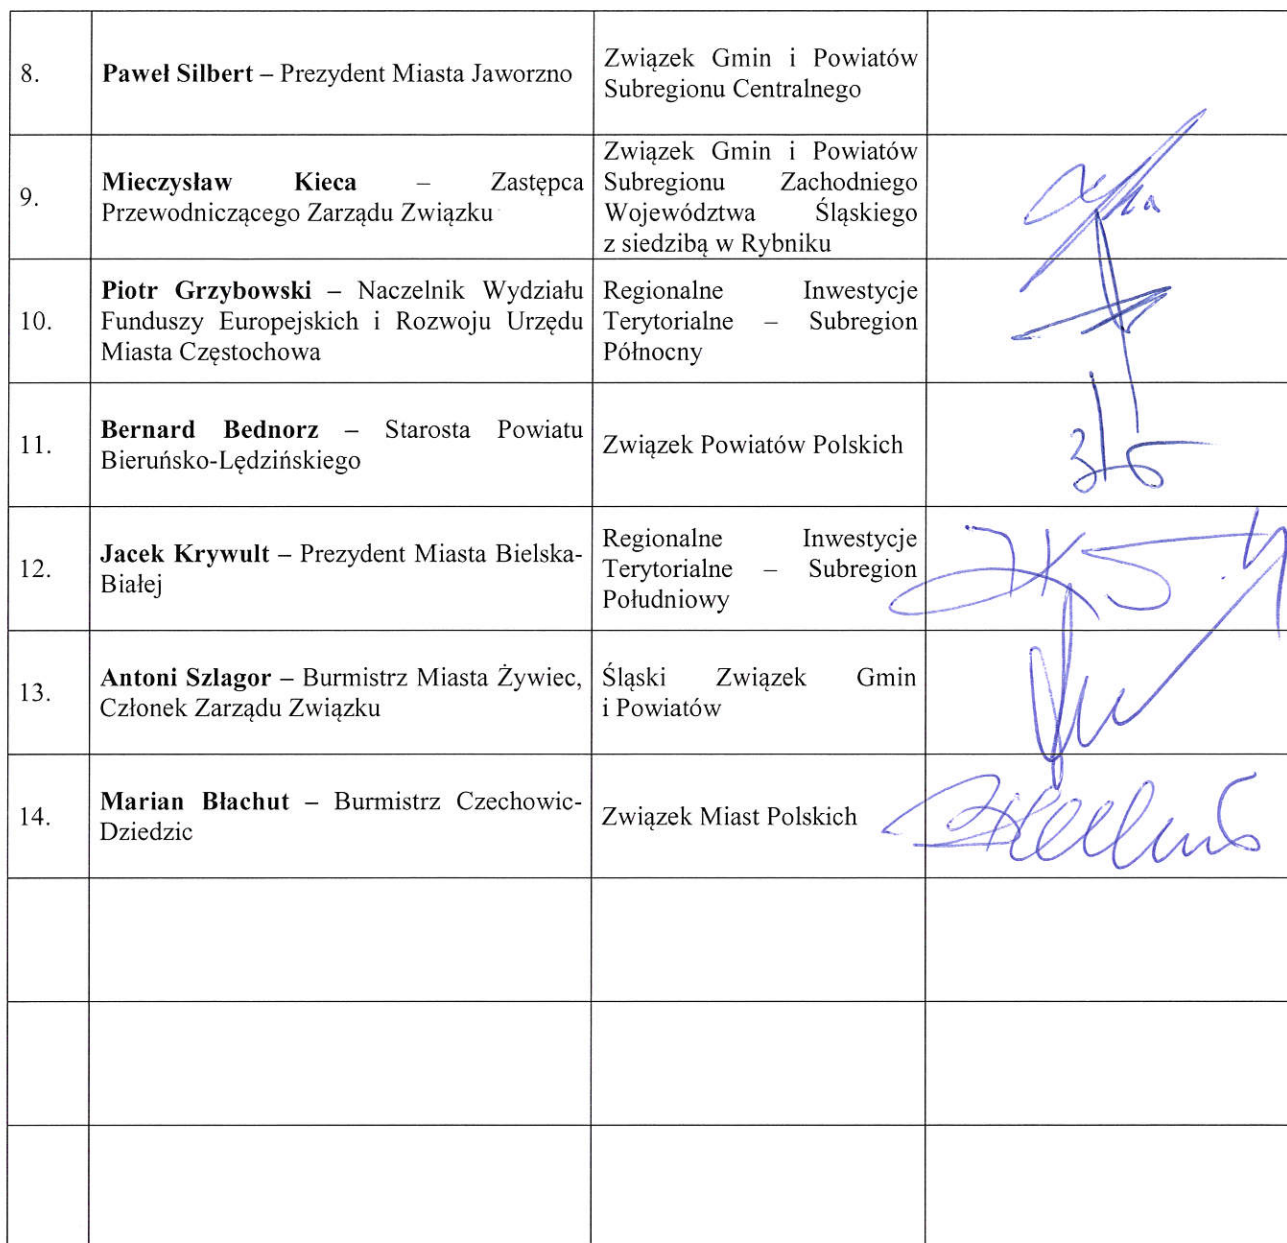 8.
Paweł Silbert – Prezydent Miasta Jaworzno
Związek Gmin i Powiatów
Subregionu Centralnego
9.
Mieczysław Kieca – Zastępca
Przewodniczącego Zarządu Związku
Związek Gmin i Powiatów
Subregionu Zachodniego
Województwa Śląskiego
z siedzibą w Rybniku
10.
Piotr Grzybowski – Naczelnik Wydziału
Funduszy Europejskich i Rozwoju Urzędu
Miasta Częstochowa
Regionalne Inwestycje
Terytorialne – Subregion
Północny
11.
Bernard Bednorz – Starosta Powiatu
Bieruńsko-Lędzińskiego
Związek Powiatów Polskich
12.
Jacek Krywult – Prezydent Miasta Bielska-
Białej
Regionalne Inwestycje
Terytorialne – Subregion
Południowy
13.
Antoni Szlagor – Burmistrz Miasta Żywiec,
Członek Zarządu Związku
Śląski Związek Gmin
i Powiatów
14.
Marian Błachut – Burmistrz Czechowic-
Dziedzic
Związek Miast Polskich